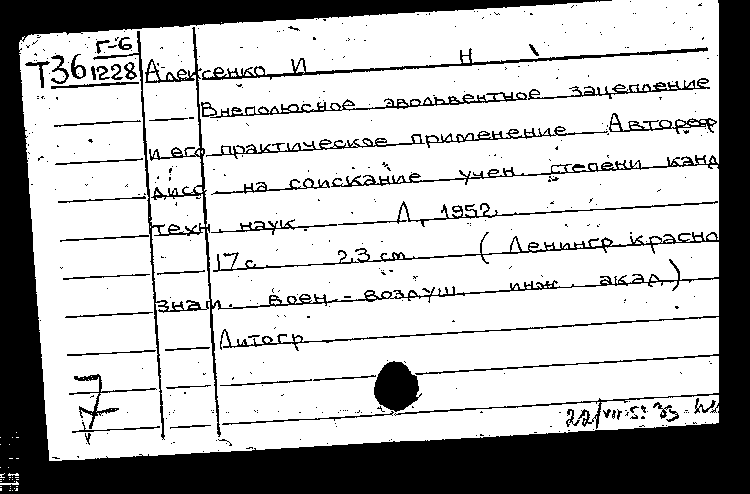 Г-6
Т36 1228 Алексенко, И Н
Внеполюсное эвольвентное зацепление
и его практическое применение Автореф
дисс. на соискание учен. степени канд
техн. наук. Л, 1952.
17 с. 23 см. (Ленингр красно
знам. воен.-воздуш. инж. акад.)
Литогр
7